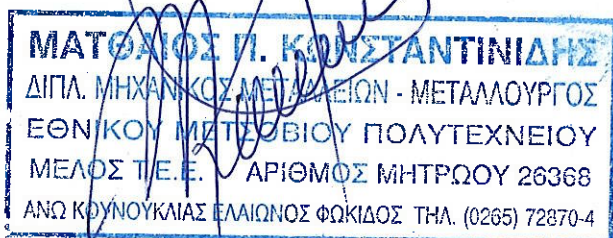 ΜΑΤΘΑΙΟΣ Π. ΚΩΝΣΤΑΝΤΙΝΙΔΗΣ
ΔΙΠΛ. ΜΗΧΑΝΙΚΟΣ ΜΕΤΑΛΛΕΙΩΝ - ΜΕΤΑΛΛΟΥΡΓΟΣ
ΕΘΝΙΚΟΥ ΜΕΤΣΟΒΙΟΥ ΠΟΛΥΤΕΧΝΕΙΟΥ
ΜΕΛΟΣ Τ.Ε.Ε. ΑΡΙΘΜΟΣ ΜΗΤΡΩΟΥ 26368
ΑΝΩ ΚΟΥΝΟΥΚΛΙΑΣ ΕΛΑΙΩΝΟΣ ΦΩΚΙΔΟΣ ΤΗΛ. (0265) 72870-4